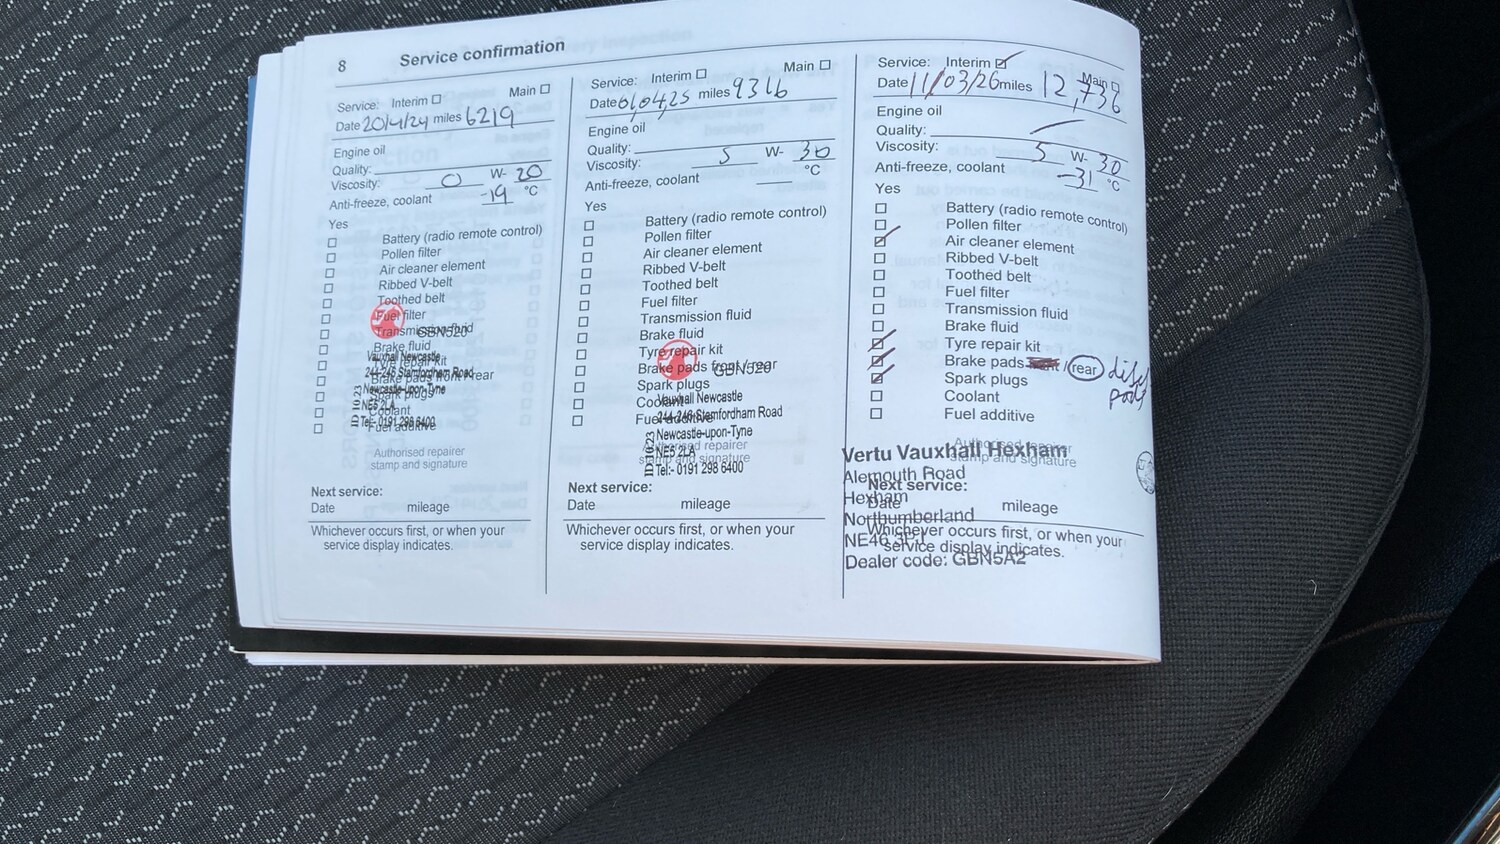 8 Service confirmation
Service: Interim Main
Date 20/4/24 miles 6219
Engine oil
Quality:
Viscosity: 0 W- 20
Anti-freeze, coolant -19 °C
Yes
Battery (radio remote control)
Pollen filter
Air cleaner element
Ribbed V-belt
Toothed belt
Fuel filter
Transmission fluid GBN520
Brake fluid
Vauxhall Newcastle
Tyre repair kit
244-246 Stamfordham Road
Brake pads front/rear
Newcastle-upon-Tyne
Spark plugs
NE5 2LA
Coolant
Tel:- 0191 298 6400
Fuel additive
Authorised repairer
stamp and signature
Next service:
Date mileage
Whichever occurs first, or when your
service display indicates.
Service: Interim Main
Date miles 9316
Engine oil
Quality:
Viscosity: 5 W- 30
Anti-freeze, coolant °C
Yes
Battery (radio remote control)
Pollen filter
Air cleaner element
Ribbed V-belt
Toothed belt
Fuel filter
Transmission fluid
Brake fluid
Tyre repair kit
Brake pads front/rear
GBN520
Spark plugs
Coolant
Vauxhall Newcastle
244-246 Stamfordham Road
Fuel additive
Newcastle-upon-Tyne
Authorised repairer
NE5 2LA
stamp and signature
Tel:- 0191 298 6400
Next service:
Date mileage
Whichever occurs first, or when your
service display indicates.
Service: Interim Main
Date 11/03/26 miles 12,736
Engine oil
Quality:
Viscosity: 5 W- 30
Anti-freeze, coolant -31 °C
Yes
Battery (radio remote control)
Pollen filter
Air cleaner element
Ribbed V-belt
Toothed belt
Fuel filter
Transmission fluid
Brake fluid
Tyre repair kit
Brake pads / rear discs
pads
Spark plugs
Coolant
Fuel additive
Authorised repairer
stamp and signature
Vertu Vauxhall Hexham
Alemouth Road
Next service:
Hexham
Date mileage
Northumberland
Whichever occurs first, or when your
NE46
service display indicates.
Dealer code: GBN5A2